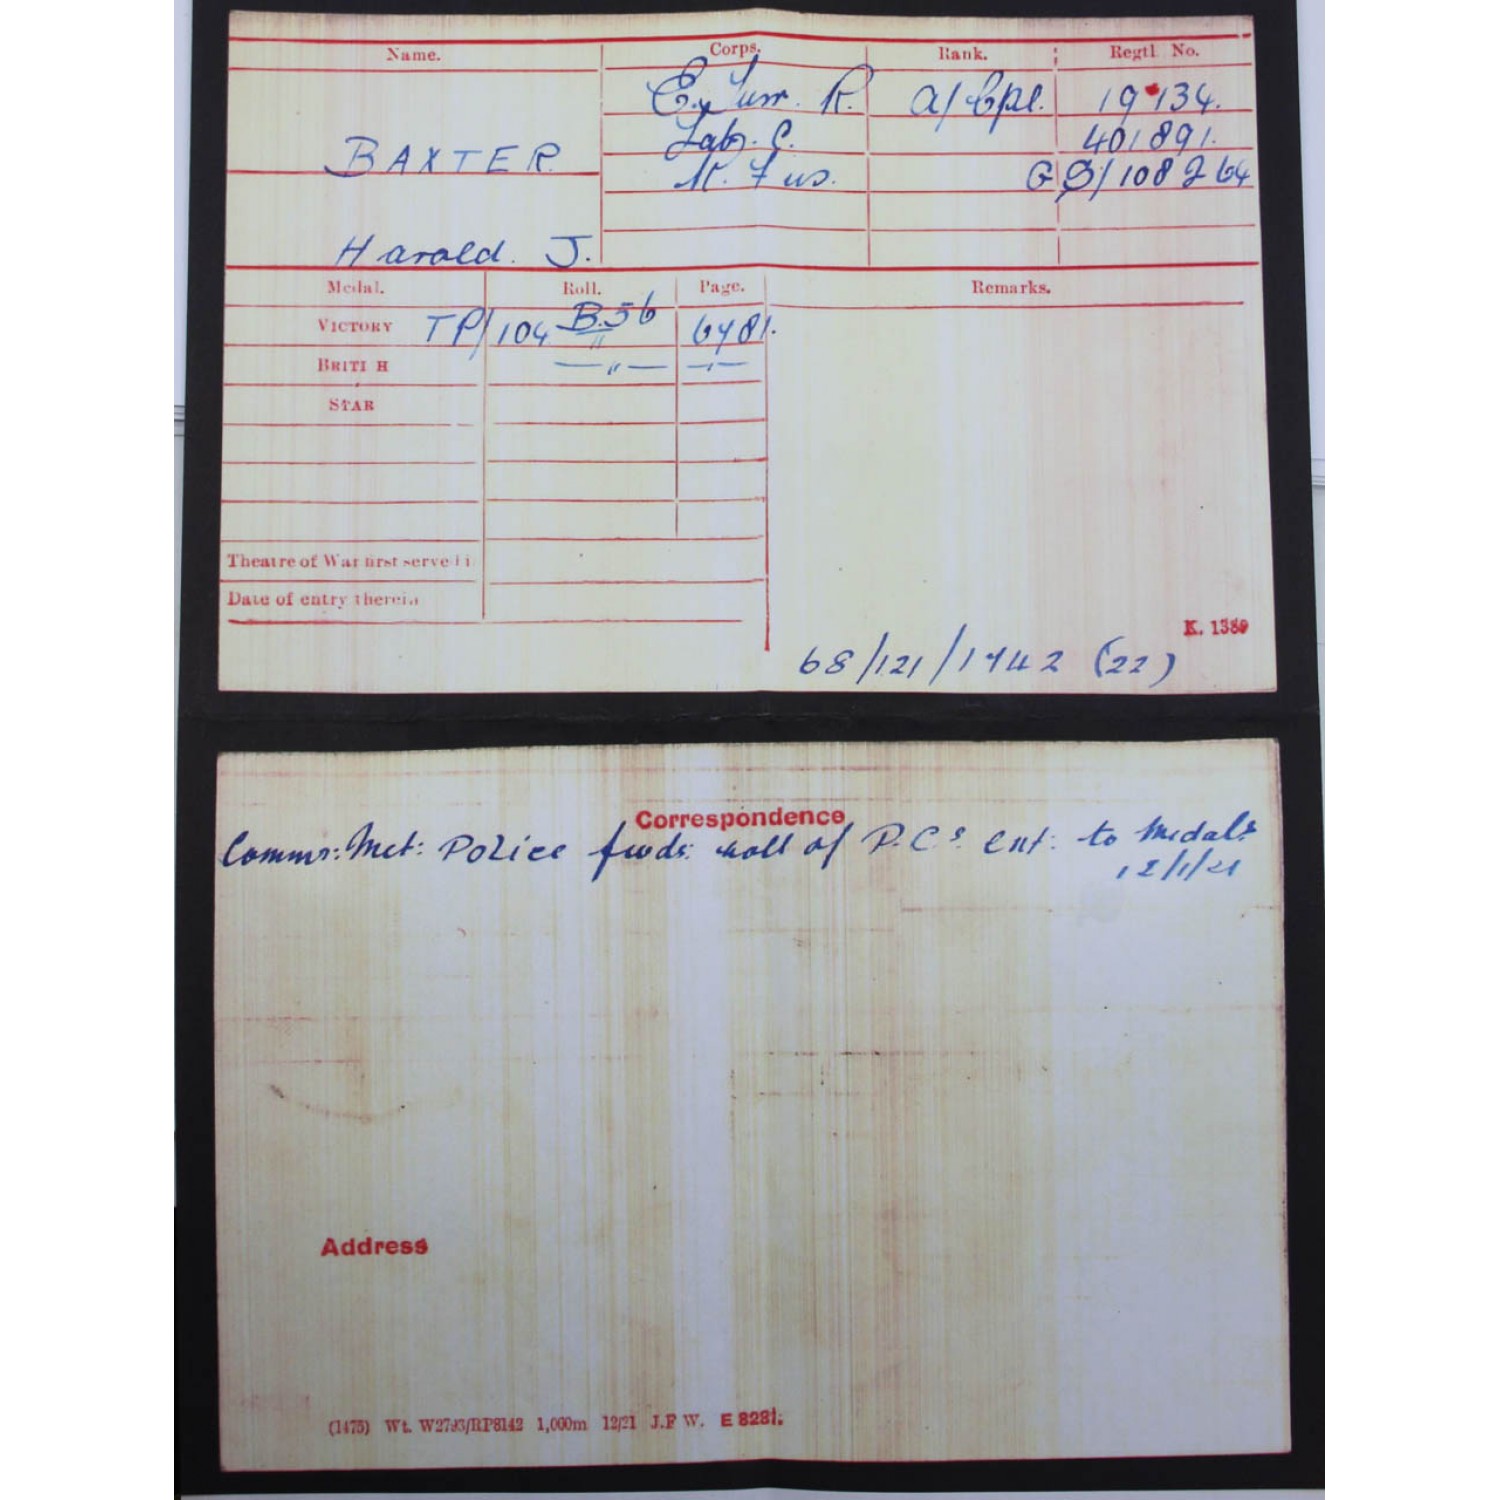 Name. Corps. Rank. Regtl No.
E. Surr. R. A/Cpl. 19134.
Lab. C. 401891.
BAXTER R. Fus. GS/108264
Harold. J.
Medal. Roll. Page. Remarks.
VICTORY TP/104 B.56 6481.
BRITI H — " — — " —
STAR
Theatre of War first serve i
Date of entry therein
K. 1380
68/121/1742 (22)
Correspondence
Commr: Met: Police fwds: roll of P.C.s ent: to Medals
12/1/21
Address
(1475) Wt. W2793/RP8142 1,000m 12/21 J.F W. E 8281.